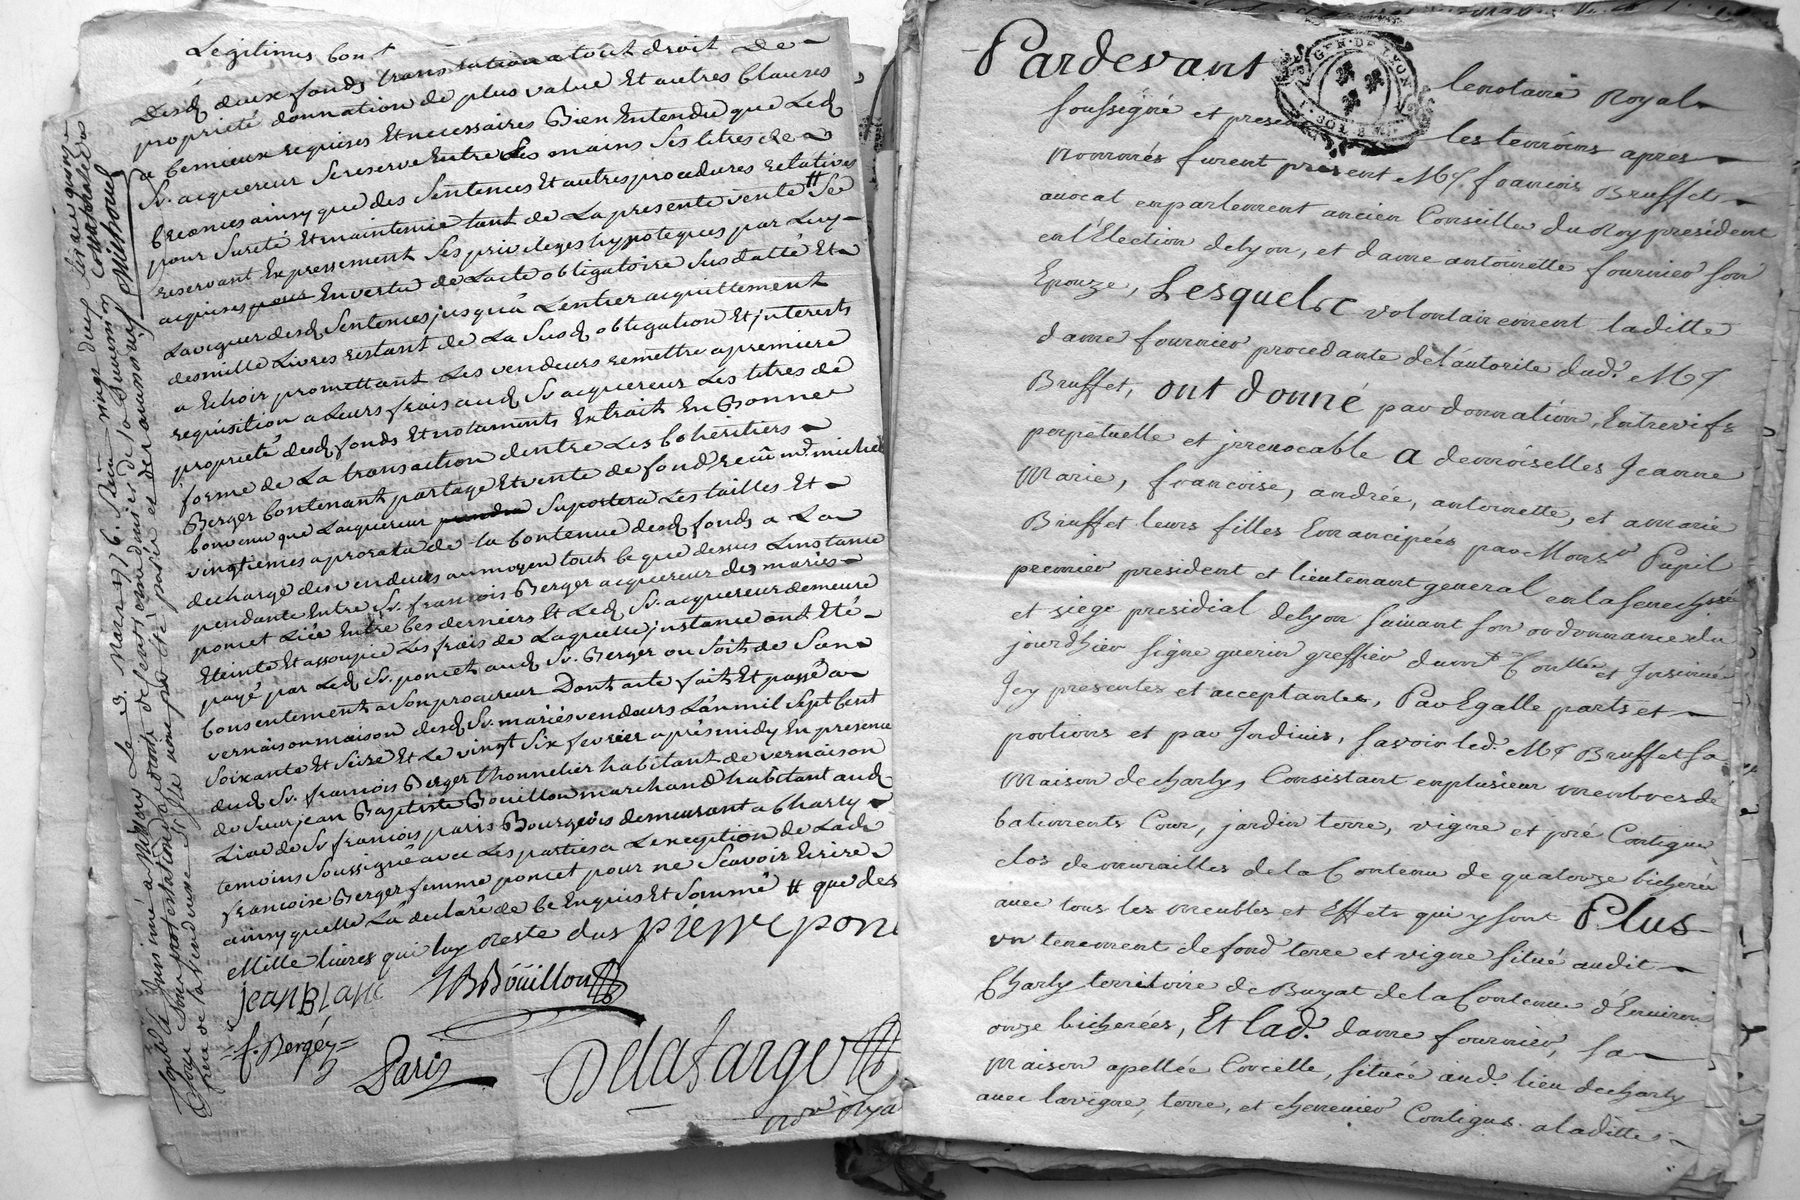 Legitimes
desd. deux fonds translation a tout droit de
propriété donnation de plus value Et autres Clauses
a ce mieux requises Et necessaires Bien Entendu que Led.
Sr. acquereur Se reserve Entre Les mains Ses titres de
creances ainsy que des Sentences Et autres procedures relatives
pour Sureté Et maintenue tant de La presente vente # Se
reservant Expressement Ses privileges hypoteques par Luy
acquises En vertu de Lacte obligatoire Susdatté Et
desd. Sentences jusqu'a L'entier acquittement
des mille Livres restant de La Susd. obligation Et jnterests
a Echoir promettant Les vendeurs remettre a premiere
requisition a Leurs frais aud. Sr. acquereur Les titres de
proprieté desd. fonds Et notaments Extrait En Bonne
forme de La transaction dentre Les Coheritiers
Berger Contenant partage Et vente de fond recû me. michel
Convenu que Lacquereur Suportera Les tailles Et
vingtiemes a prorata de la Contenue desd. fonds a La
decharge des vendeurs au moyen tout Ce que dessus Linstance
pendante Entre Sr. françois Berger acquereur des mariés
poncet Liée Entre Ces derniers Et Led. Sr. acquereur demeure
Eteinte Et assoupie Les frais de Laquelle jnstance ont Eté
payé par Led. Sr. poncet aud. Sr. Berger ou Soit de Son
Consentement a Son procureur Dont acte fait Et passé a
vernaison maison desd. Sr. mariés vendeurs L'an mil Sept Cent
Soixante Et Seize Et Le vingt Six fevrier aprés midy En presence
dud. Sr. françois Berger thonnelier habitant de vernaison
de Sieur jean Baptiste Bouillon marchand habitant aud.
Lieu de Sr. françois paris Bourgeois demeurant a Charly
temoins Soussigné avec Les parties a Lexception de Lad.
françoise Berger femme poncet pour ne Scavoir Ecrire
ainsy quelle La declaré de Ce Enquis Et Sommé # que des
Mille livres qui luy reste dus pierre ponc
jean BLanc JB Bouillon
f. Bergér
Paris
Delafarge
nore. Roya
Millery Le 3. Mars 1776. Reçu vingt deux
Pardevant le notaire Royal
soussigné et les temoins apres
nommés furent present Mr. françois Bruffet
avocat en parlement ancien Conseiller du Roy president
en l'Election de lyon, et dame antoinette fournier son
Epouze, Lesquels volontairement laditte
dame fournier procedante de l'autorité dud. Mr.
Bruffet, ont donné par donnation Entrevifs
perpetuelle et jrrevocable a demoiselles Jeanne
Marie, françoise, andrée, antoinette, et amarie
Bruffet leurs filles Emancipées par Monsr. Papil
premier president et lieutenant general en la senechssée
et siege presidial de lyon suivant son ordonnance du
jourdhier signe guerin greffier et Insinué
Icy presentes et acceptantes, Par Egalle parts et
portions et par Indivis, savoir led. Mr. Bruffet sa
maison de charly, Consistant en plusieur membres de
batiments Cour, jardin terre, vigne et pré Contigue
clos de murailles de la Contenue de quatorze bicherée
avec tous les meubles et Effets qui y sont Plus
un tenement de fond terre et vigne situé audit
Charly territoire de Buyat de la Contenue d'Environ
onze bicherées, Et lad. dame fournier, sa
maison apellée Corcelle, située aud. lieu de charly
avec la vigne, terre, et chenevier Contigus a laditte